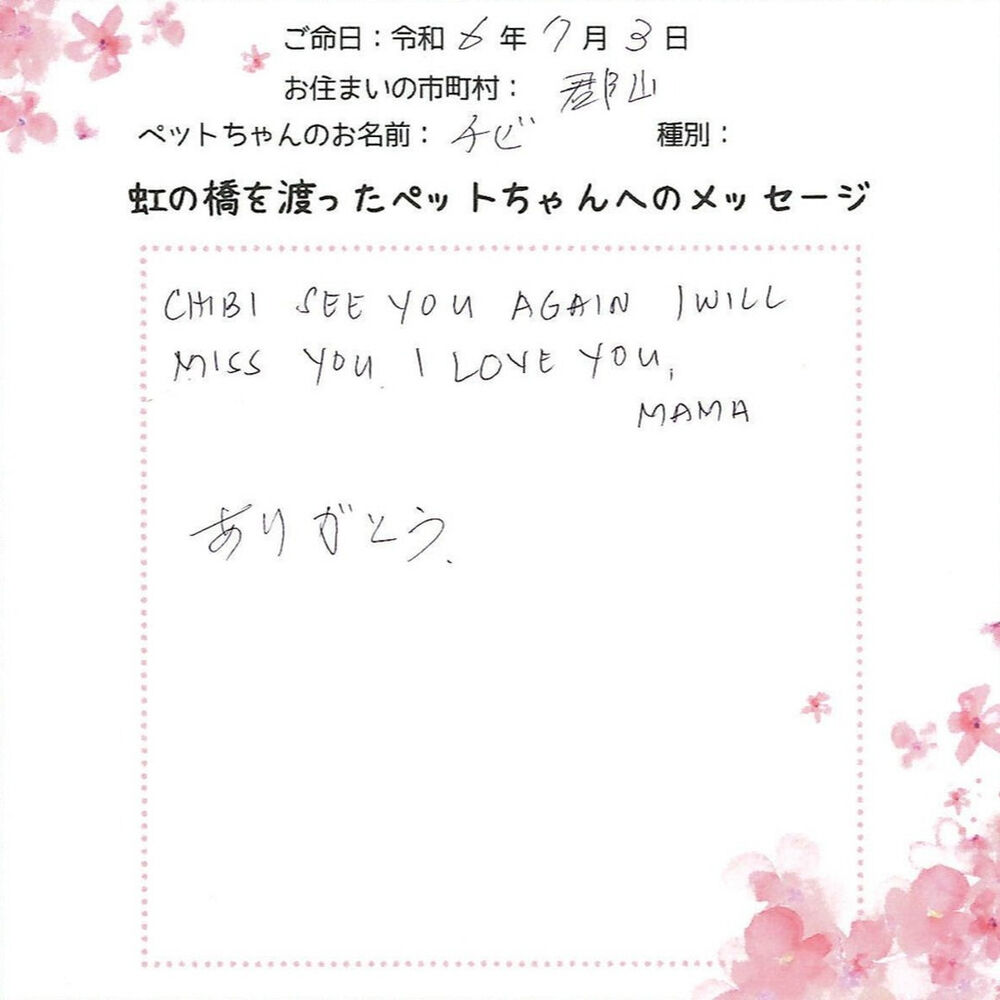 ご命日：令和 6 年 7 月 3 日
お住まいの市町村： 郡山
ペットちゃんのお名前： チビ 種別：
虹の橋を渡ったペットちゃんへのメッセージ
CHIBI SEE YOU AGAIN I WILL
MISS YOU. I LOVE YOU,
MAMA
ありがとう.